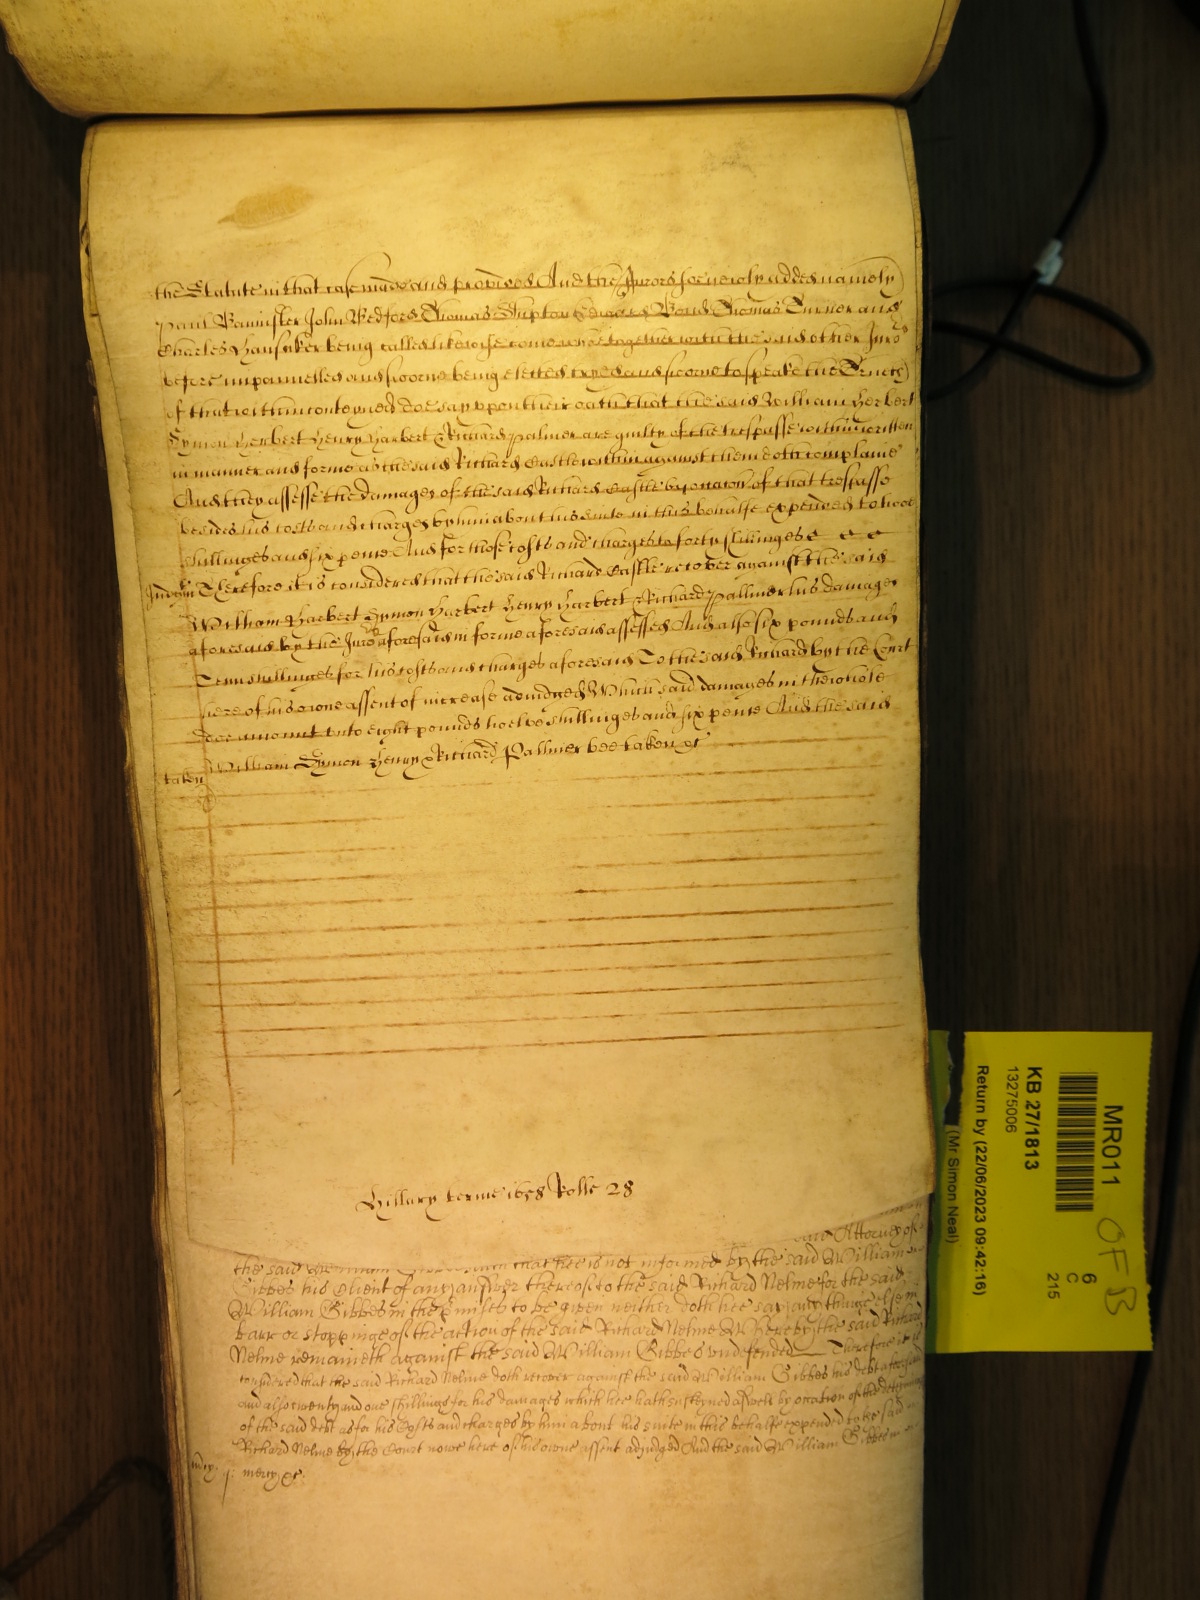 the Statute in that case made and provided And the Jurors soe newly added namely
Paul Bannister John Bedford Thomas Shipton Edward Bond Thomas Turner and
Charles being called likewise come whoe together with the said other Juro
before impannelled and sworne being elected tryed and sworne to speake the Trueth
of that within conteyned doe say uppon their oath that the said William Herbert
Symon Herbert Henry Harbert & Richard Palmer are guilty of the trespasse within written
in manner and forme as the said Richard Castle within against them doth complaine
And they assesse the damages of the said Richard Castle by occation of that trespasse
besides his costs and charges by him about his suite in this behalfe expended to twoe
shillinges and six pence And for those costs and charges to forty shillinges
Judgm Therefore it is considered that the said Richard Castle recover against the said
William Harbert Symon Harbert Henry Harbert & Richard Pallmer his damages
aforesaid by the Jurors aforesaid in forme aforesaid assessed And also six pounds and
Tenn shillinges for his costs and charges aforesaid To the said Richard by the Court
here of his owne assent of increase adiudged Which said damages in the whole
doe amount unto eight pounds twelve shillinges and six pence And the said
taken William Symon Henry & Richard Pallmer bee taken &c
Hillary terme 1658 Rolle 28
said Attorney of
the said that hee is not informed by the said William
Gibbes his client of any answer thereof to the said Richard Nelme for the said
William Gibbes in the p'misses to be given neither doth hee say any thinge else in
barr or stoppinge of the action of the said Richard Nelme Whereby the said Richard
Nelme remaineth against the said William Gibbes undefended Therefore it is
considered that the said Richard Nelme doth recover against the said William Gibbes his debt aforesaid
and also twenty and one shillings for his damages which hee hath susteyned aswell by occation of the
of the said debt as for his Costs and charges by him about his suite in this behalfe expended to the said
Richard Nelme by the Court nowe here of his owne assent adjudged And the said William Gibbes in
mercy &c.
MR011
OFB
6
C
215
KB 27/1813
13275006
Return by (22/06/2023 09:42:16)
(Mr Simon Neal)